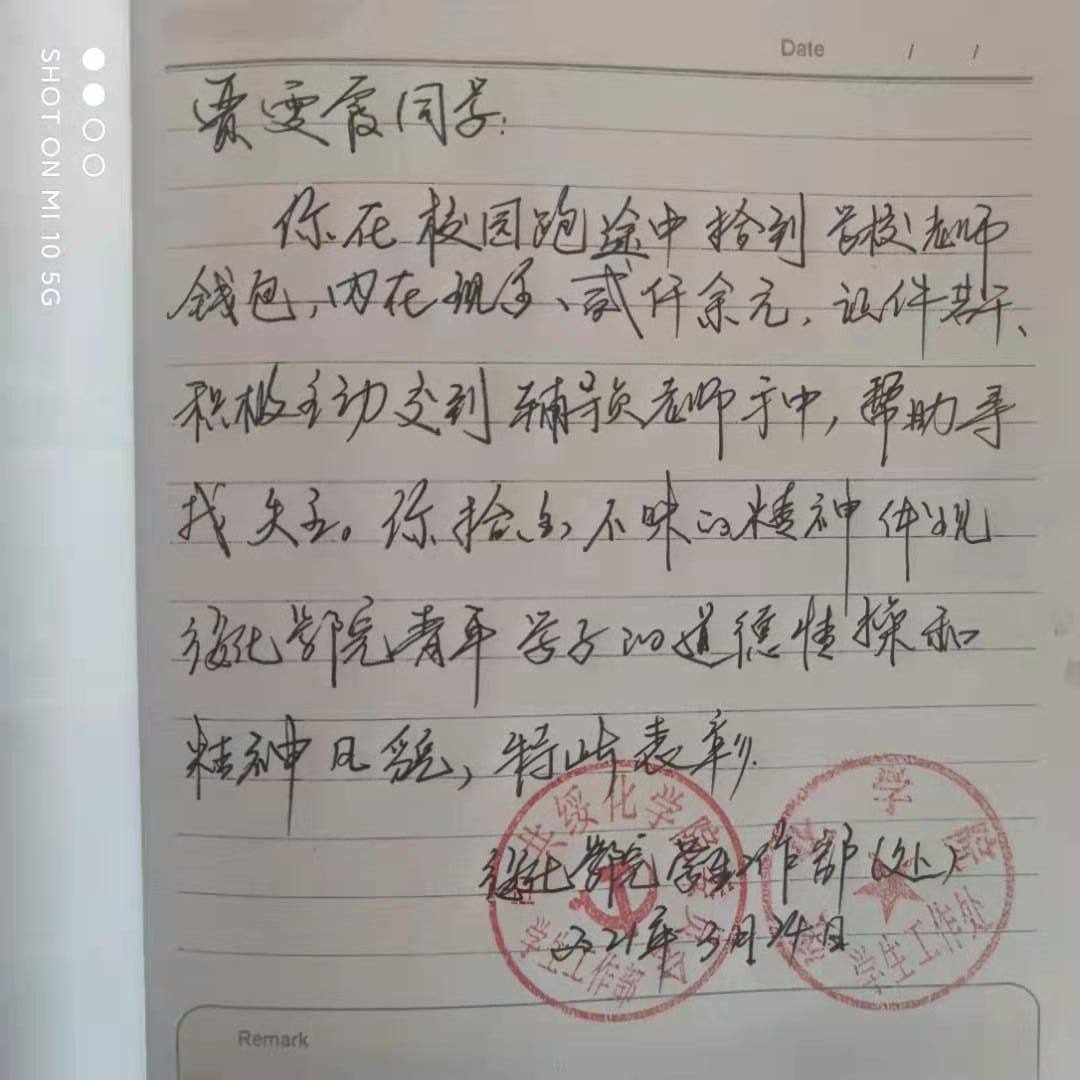 SHOT ON MI 10 5G
Date / /
贾雯霞同学:
你在校园跑途中拾到学校老师
钱包,内在现金、贰仟余元,证件若干、
积极主动交到辅导员老师手中,帮助寻
找失主。你拾金不昧的精神体现
绥化学院青年学子的道德情操和
精神风貌,特此表彰.
中共绥化学院委员会
学生工作部
绥化学院
学生工作处
绥化学院学生工作部(处)
2021年3月24日
Remark